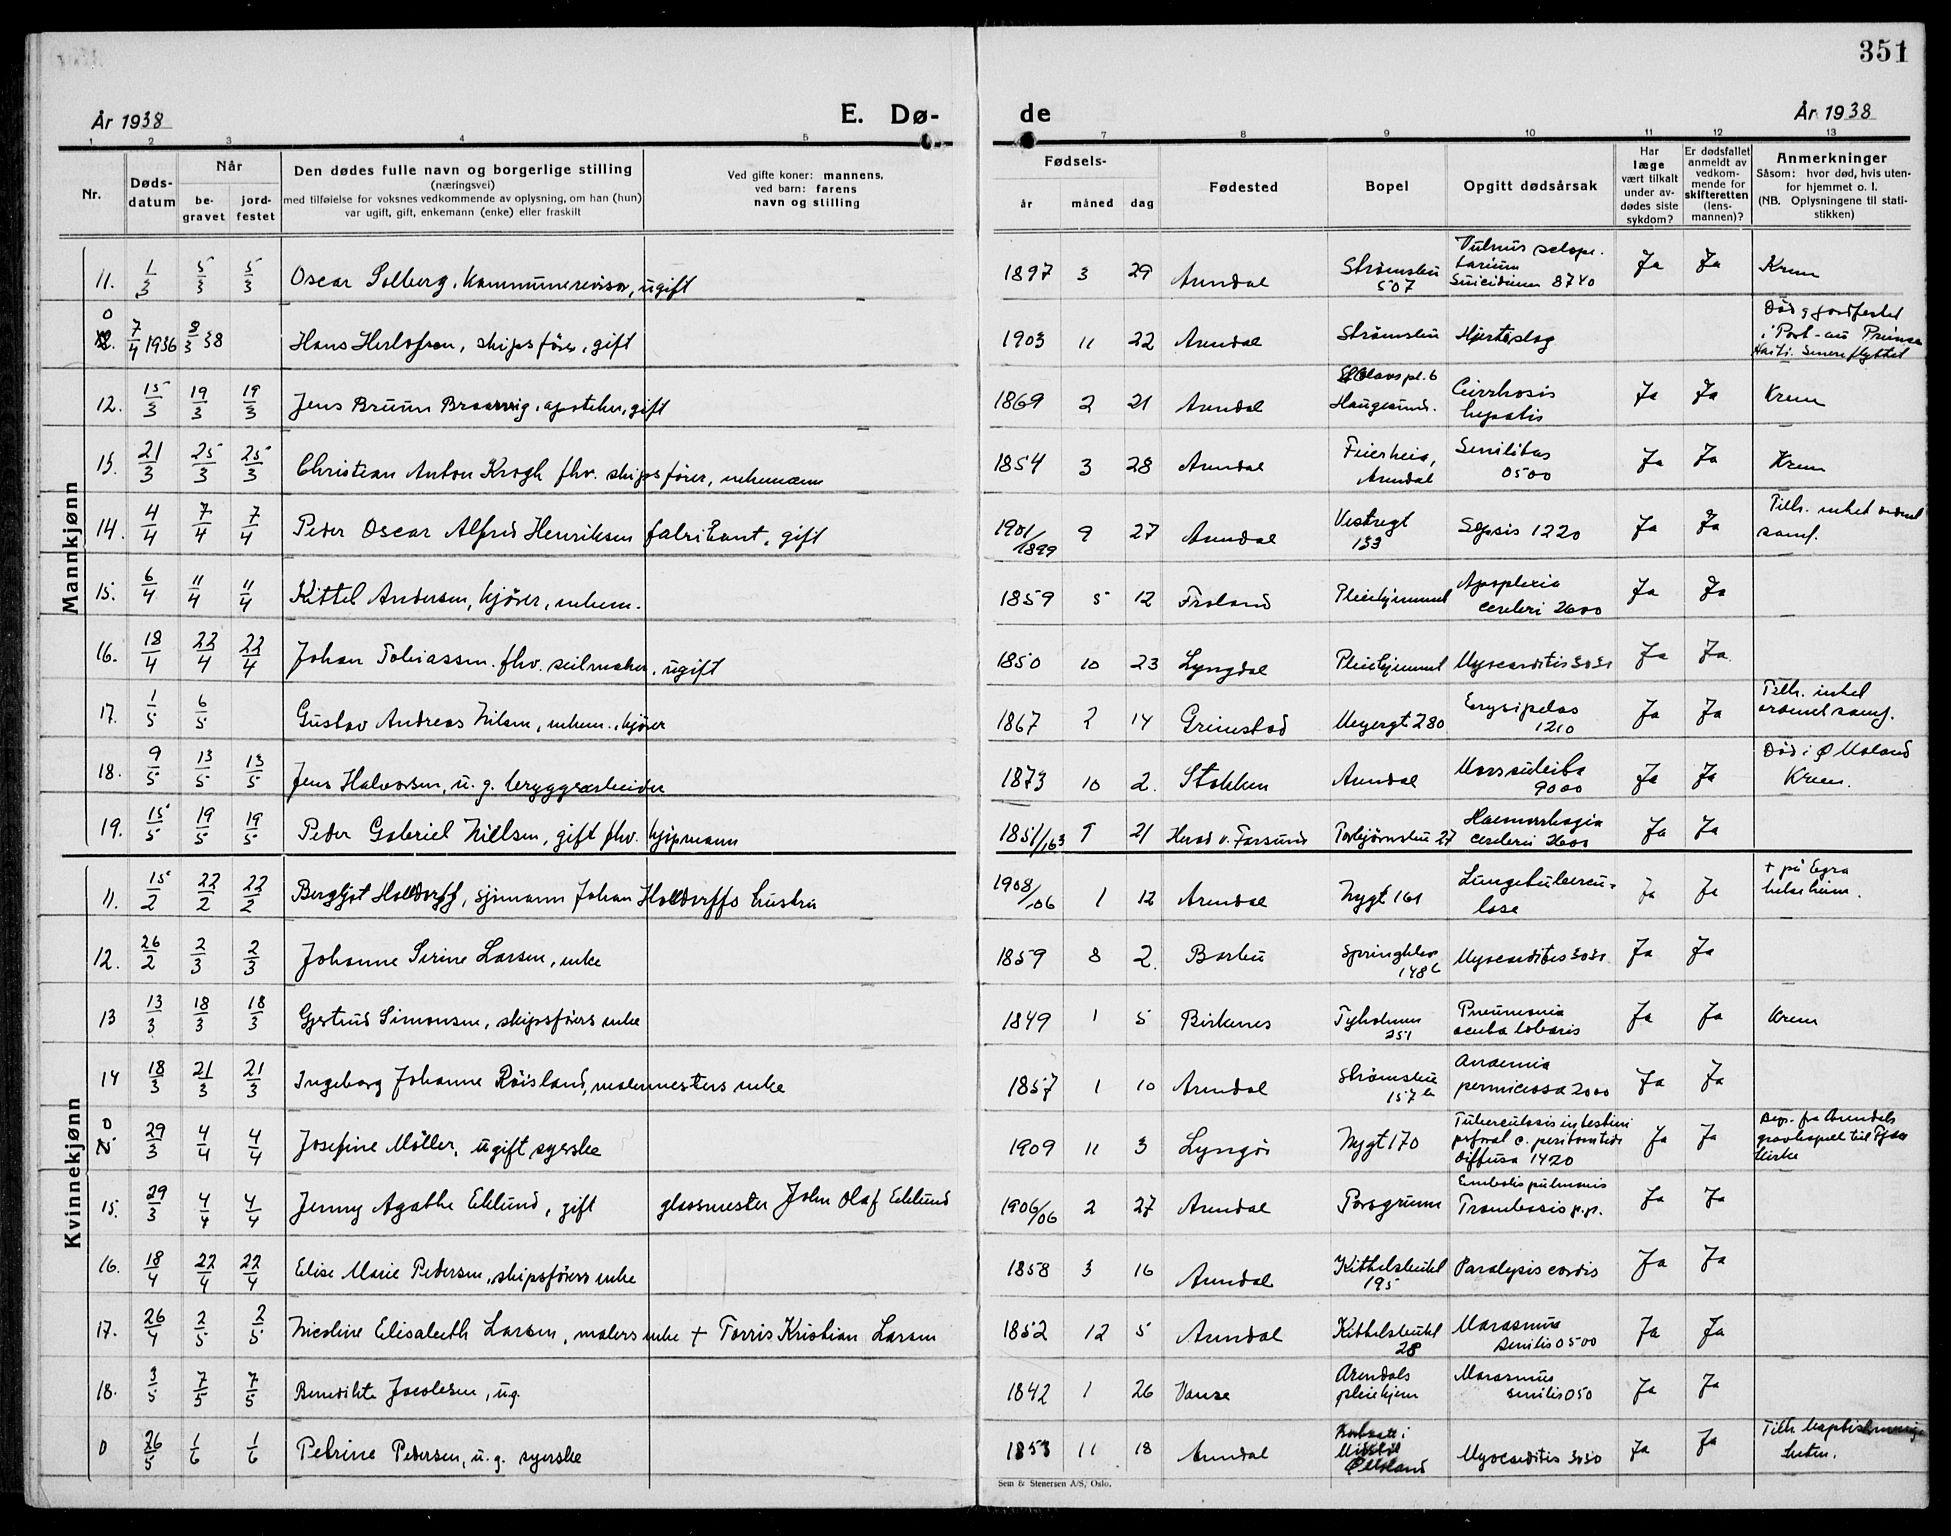 351
År 1938 E. Dø- de År 1938
1 2 3 4 5 7 8 9 10 11 12 13
Nr.
Døds-
datum
Når
be-
gravet
jord-
festet
Den dødes fulle navn og borgerlige stilling
(næringsvei)
med tilføielse for voksnes vedkommende av oplysning, om han (hun)
var ugift, gift, enkemann (enke) eller fraskilt
Ved gifte koner: mannens,
ved barn: farens
navn og stilling
Fødsels-
år måned dag
Fødested
Bopel
Opgitt dødsårsak
Har
læge
vært tilkalt
under av-
dødes siste
sykdom?
Er dødsfallet
anmeldt av
vedkom-
mende for
skifteretten
(lens-
mannen)?
Anmerkninger
Såsom: hvor død, hvis uten-
for hjemmet o. l.
(NB. Oplysningene til stati-
stikken)
Mannkjønn
11. 1/3 5/3 5/3 Oscar Solberg, kommunerevisor, ugift 1897 3 29 Arendal Strømsbu 507 Vulnus sclope-
tarium
Suicidium 8740 Ja Ja Krem
0 7/4 1936 8/3 38 Hans Herlofsen, skipsfører, gift 1903 11 22 Arendal Strømsbu Hjerteslag Død og jordfestet
i Port-au Prince
Haiti. Senere flyttet
12. 15/3 19/3 19/3 Jens Bruun Braarvig, apoteker, gift 1869 2 21 Arendal St Olavspl. 6
Haugesund. Cirrhosis
hepatis Ja Ja Krem
13. 21/3 25/3 25/3 Christian Anton Krogh fhv. skipsfører, enkemann 1854 3 28 Arendal Feierheia,
Arendal Senilitas
0500 Ja Ja Krem
14. 4/4 7/4 7/4 Peder Oscar Alfred Henriksen fabrikant, gift 1901/1899 9 27 Arendal Vestregt
133 Sepsis 1220 Ja Ja Tilh. intet ordnet
samf.
15. 6/4 11/4 11/4 Kittel Andersen, kjører, enkem. 1859 5 12 Froland Pleiehjemmet Apoplexia
cerebri 2600 Ja Ja
16. 18/4 22/4 22/4 Johan Tobiassen. fhv. seilmaker, ugift 1850 10 23 Lyngdal Pleiehjemmet Myocarditis 3030 Ja Ja
17. 1/5 6/5 Gustav Andreas Nilsen, enkem., kjører 1867 2 14 Grimstad Meyergt 280 Erysipelas
1210 Ja Ja Tilh. intet
ordnet samf.
18. 9/5 13/5 13/5 Jens Halvorsen, u. g. bryggearbeider 1873 10 2. Stokken Arendal Mors subita
9000 Ja Ja Død i Ø Moland
Krem.
19. 15/5 19/5 19/5 Peder Gabriel Nielsen, gift fhv. kjøpmann 1851/163 9 21 Herad v. Farsund Torbjørnsbu 27 Haemorrhagia
cerebri 2600 Ja Ja
Kvinnekjønn
11. 15/2 22/2 22/2 Bergljot Holldorff, sjømann Johan Holldorffs hustru 1908/06 1 12 Arendal Nygt 161 Lungetubercu-
lose Ja Ja + på Egra
helseheim.
12. 26/2 2/3 2/3 Johanne Serine Larsen, enke 1859 8 2. Barbu Springkleiv
148 b Myocarditis 3030 Ja Ja
13 13/3 18/3 18/3 Gjertrud Simonsen, skipsførers enke 1849 1 5 Birkenes Tyholmen
251 Pneumonia
acuta lobaris Ja Ja Krem
14 18/3 21/3 21/3 Ingeborg Johanne Røisland, malermesters enke 1857 1 10 Arendal Strømsbu
157 b Anaemia
perniciosa 2000 Ja Ja
0 29/3 4/4 4/4 Josefine Møller, ugift syerske 1909 11 3 Lyngør Nygt 170 Tuberculosis intestini
perforat c. peritonitide
diffusa 1420 Ja Ja Begr. fra Arendals
gravkapell til
kirke
15. 29/3 4/4 4/4 Jenny Agathe Eklund, gift glassmester John Olaf Eklund 1906/06 2 27 Arendal Porsgrunn Embolis pulmonis
Trombosis p.p. Ja Ja
16. 18/4 22/4 22/4 Elise Marie Pedersen, skipsførers enke 1858 3 16 Arendal Kittelsbukt
195 Paralysis cordis Ja Ja
17. 26/4 2/5 2/5 Nicoline Elisabeth Larsen, malers enke + Torris Kristian Larsen 1852 12 5 Arendal Kittelsbukt
28 Marasmus
senilis 0500 Ja Ja
18. 3/5 7/5 7/5 Benedikte Jacobsen, ug. 1842 1 26 Vanse Arendals
pleiehjem Marasmus
senilis 050 Ja Ja
0 26/5 1/6 1/6 Petrine Pedersen, u. g. syerske 1853 11 18 Arendal Bortsatt i
Ø Moland Myocarditis 3030 Ja Ja Tilh baptistmenig-
heten.
Sem & Stenersen A/S, Oslo.